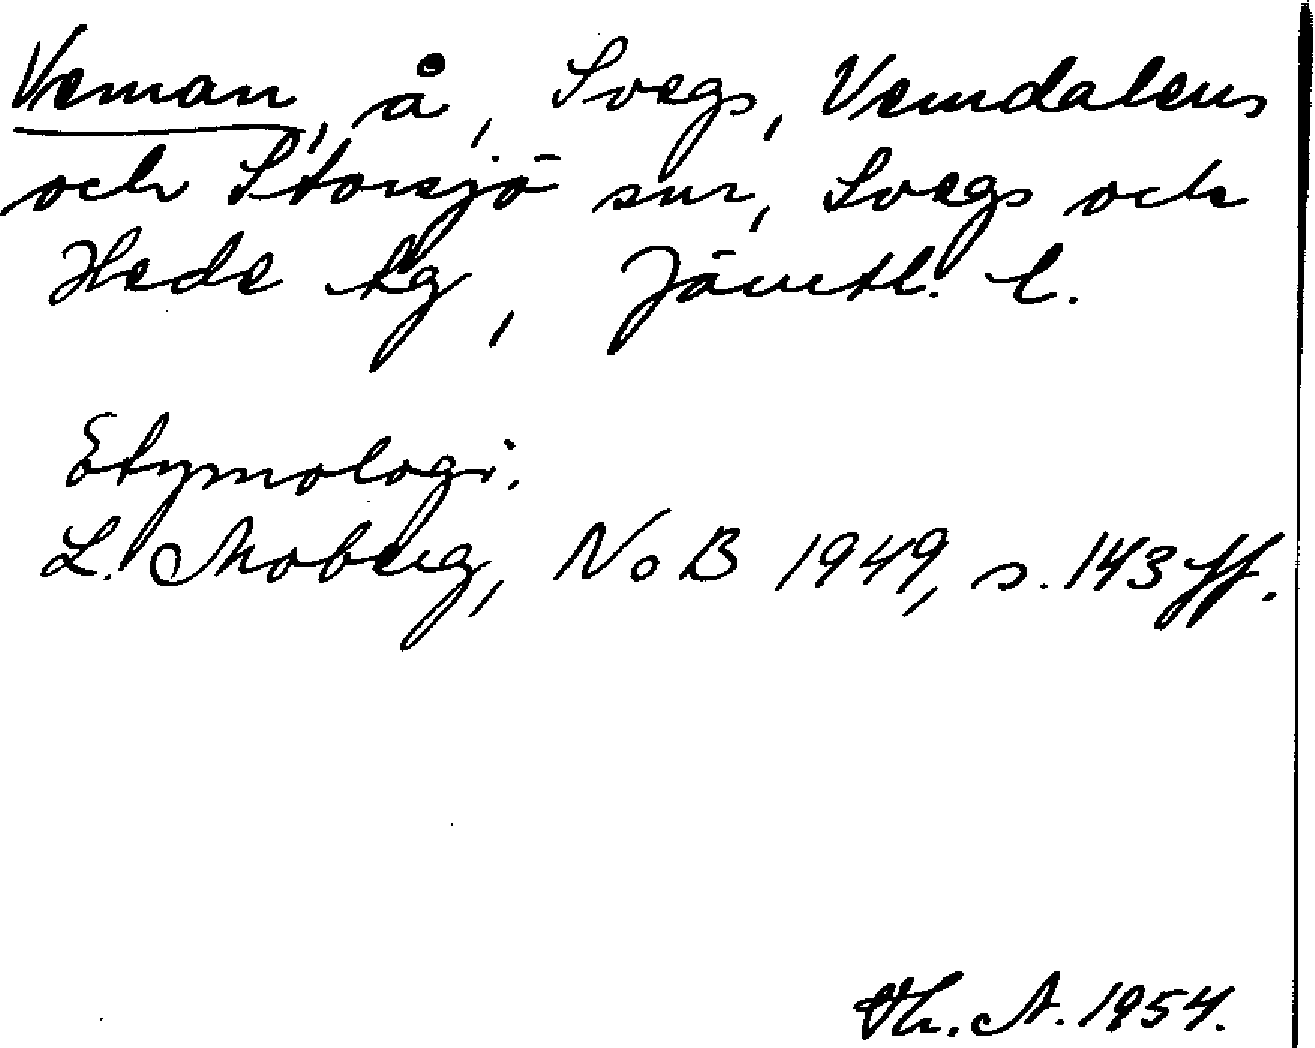 Veman, å, Svegs, Vemdalens
och Storsjö snr, Svegs och
Hede tg, Jämtl. l.
Etymologi.
L. Moberg, NoB 1949, s. 143 ff.
Th. A. 1954.